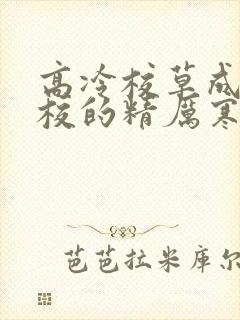 高冷校草成
校的精厕寒
芭芭拉米库尔